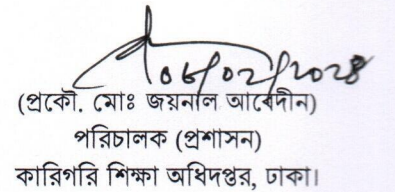 ০৬/০২/২০২৪
(প্রকৌ. মোঃ জয়নাল আবেদীন)
পরিচালক (প্রশাসন)
কারিগরি শিক্ষা অধিদপ্তর, ঢাকা।